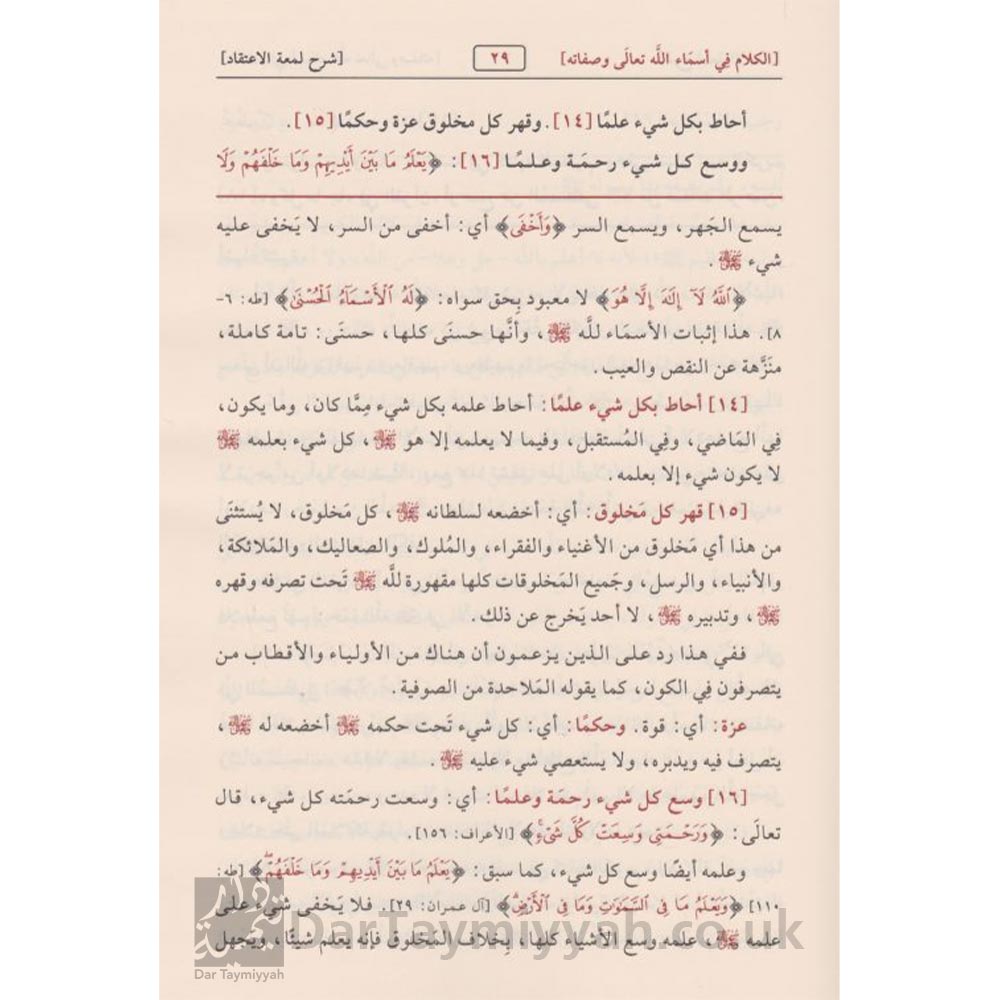 [الكلام فِي أسمَاء اللَّه تعالَى وصفاته] ٢٩ [شرح لمعة الاعتقاد]
أحاط بكل شيء علمًا [١٤]. وقهر كل مخلوق عزة وحكمًا [١٥].
ووسع كل شيء رحمَة وعلمًا [١٦]: ﴿يَعْلَمُ مَا بَيْنَ أَيْدِيهِمْ وَمَا خَلْفَهُمْ وَلَا
يسمع الجَهر، ويسمع السر ﴿وَأَخْفَى﴾ أي: أخفى من السر، لا يَخفى عليه
شيء ﷻ.
﴿اللَّهُ لَآ إِلَٰهَ إِلَّا هُوَ﴾ لا معبود بِحق سواه: ﴿لَهُ ٱلْأَسْمَآءُ ٱلْحُسْنَىٰ﴾ [طه: ٦-
٨]. هذا إثبات الأسمَاء للَّه ﷻ، وأنَّها حسنَى كلها، حسنَى: تامة كاملة،
منَزَّهة عن النقص والعيب.
[١٤] أحاط بكل شيء علمًا: أحاط علمه بكل شيء مِمَّا كان، وما يكون،
فِي المَاضي، وفِي المُستقبل، وفيما لا يعلمه إلا هو ﷻ، كل شيء بعلمه ﷻ
لا يكون شيء إلا بعلمه.
[١٥] قهر كل مَخلوق: أي: أخضعه لسلطانه ﷻ، كل مَخلوق، لا يُستثنَى
من هذا أي مَخلوق من الأغنياء والفقراء، والمُلوك، والصعاليك، والمَلائكة،
والأنبياء، والرسل، وجَميع المَخلوقات كلها مقهورة للَّه ﷻ تَحت تصرفه وقهره
ﷻ، وتدبيره ﷻ، لا أحد يَخرج عن ذلك.
ففي هذا رد على الذين يزعمون أن هناك من الأولياء والأقطاب من
يتصرفون فِي الكون، كما يقوله المَلاحدة من الصوفية.
عزة: أي: قوة. وحكمًا: أي: كل شيء تَحت حكمه ﷻ أخضعه له ﷻ،
يتصرف فيه ويدبره، ولا يستعصي شيء عليه ﷻ.
[١٦] وسع كل شيء رحمَة وعلمًا: أي: وسعت رحمَته كل شيء، قال
تعالَى: ﴿وَرَحْمَتِي وَسِعَتْ كُلَّ شَيْءٍ﴾ [الأعراف: ١٥٦].
وعلمه أيضًا وسع كل شيء، كما سبق: ﴿يَعْلَمُ مَا بَيْنَ أَيْدِيهِمْ وَمَا خَلْفَهُمْ﴾ [طه:
١١٠] ﴿وَيَعْلَمُ مَا فِي ٱلسَّمَٰوَٰتِ وَمَا فِي ٱلْأَرْضِ﴾ [آل عمران: ٢٩]. فلا يَخفى شيء على
علمه ﷻ، علمه وسع الأشياء كلها، بِخلاف المَخلوق فإنه يعلم شيئًا، ويَجهل
DarTaymiyyah.co.uk
Dar Taymiyyah